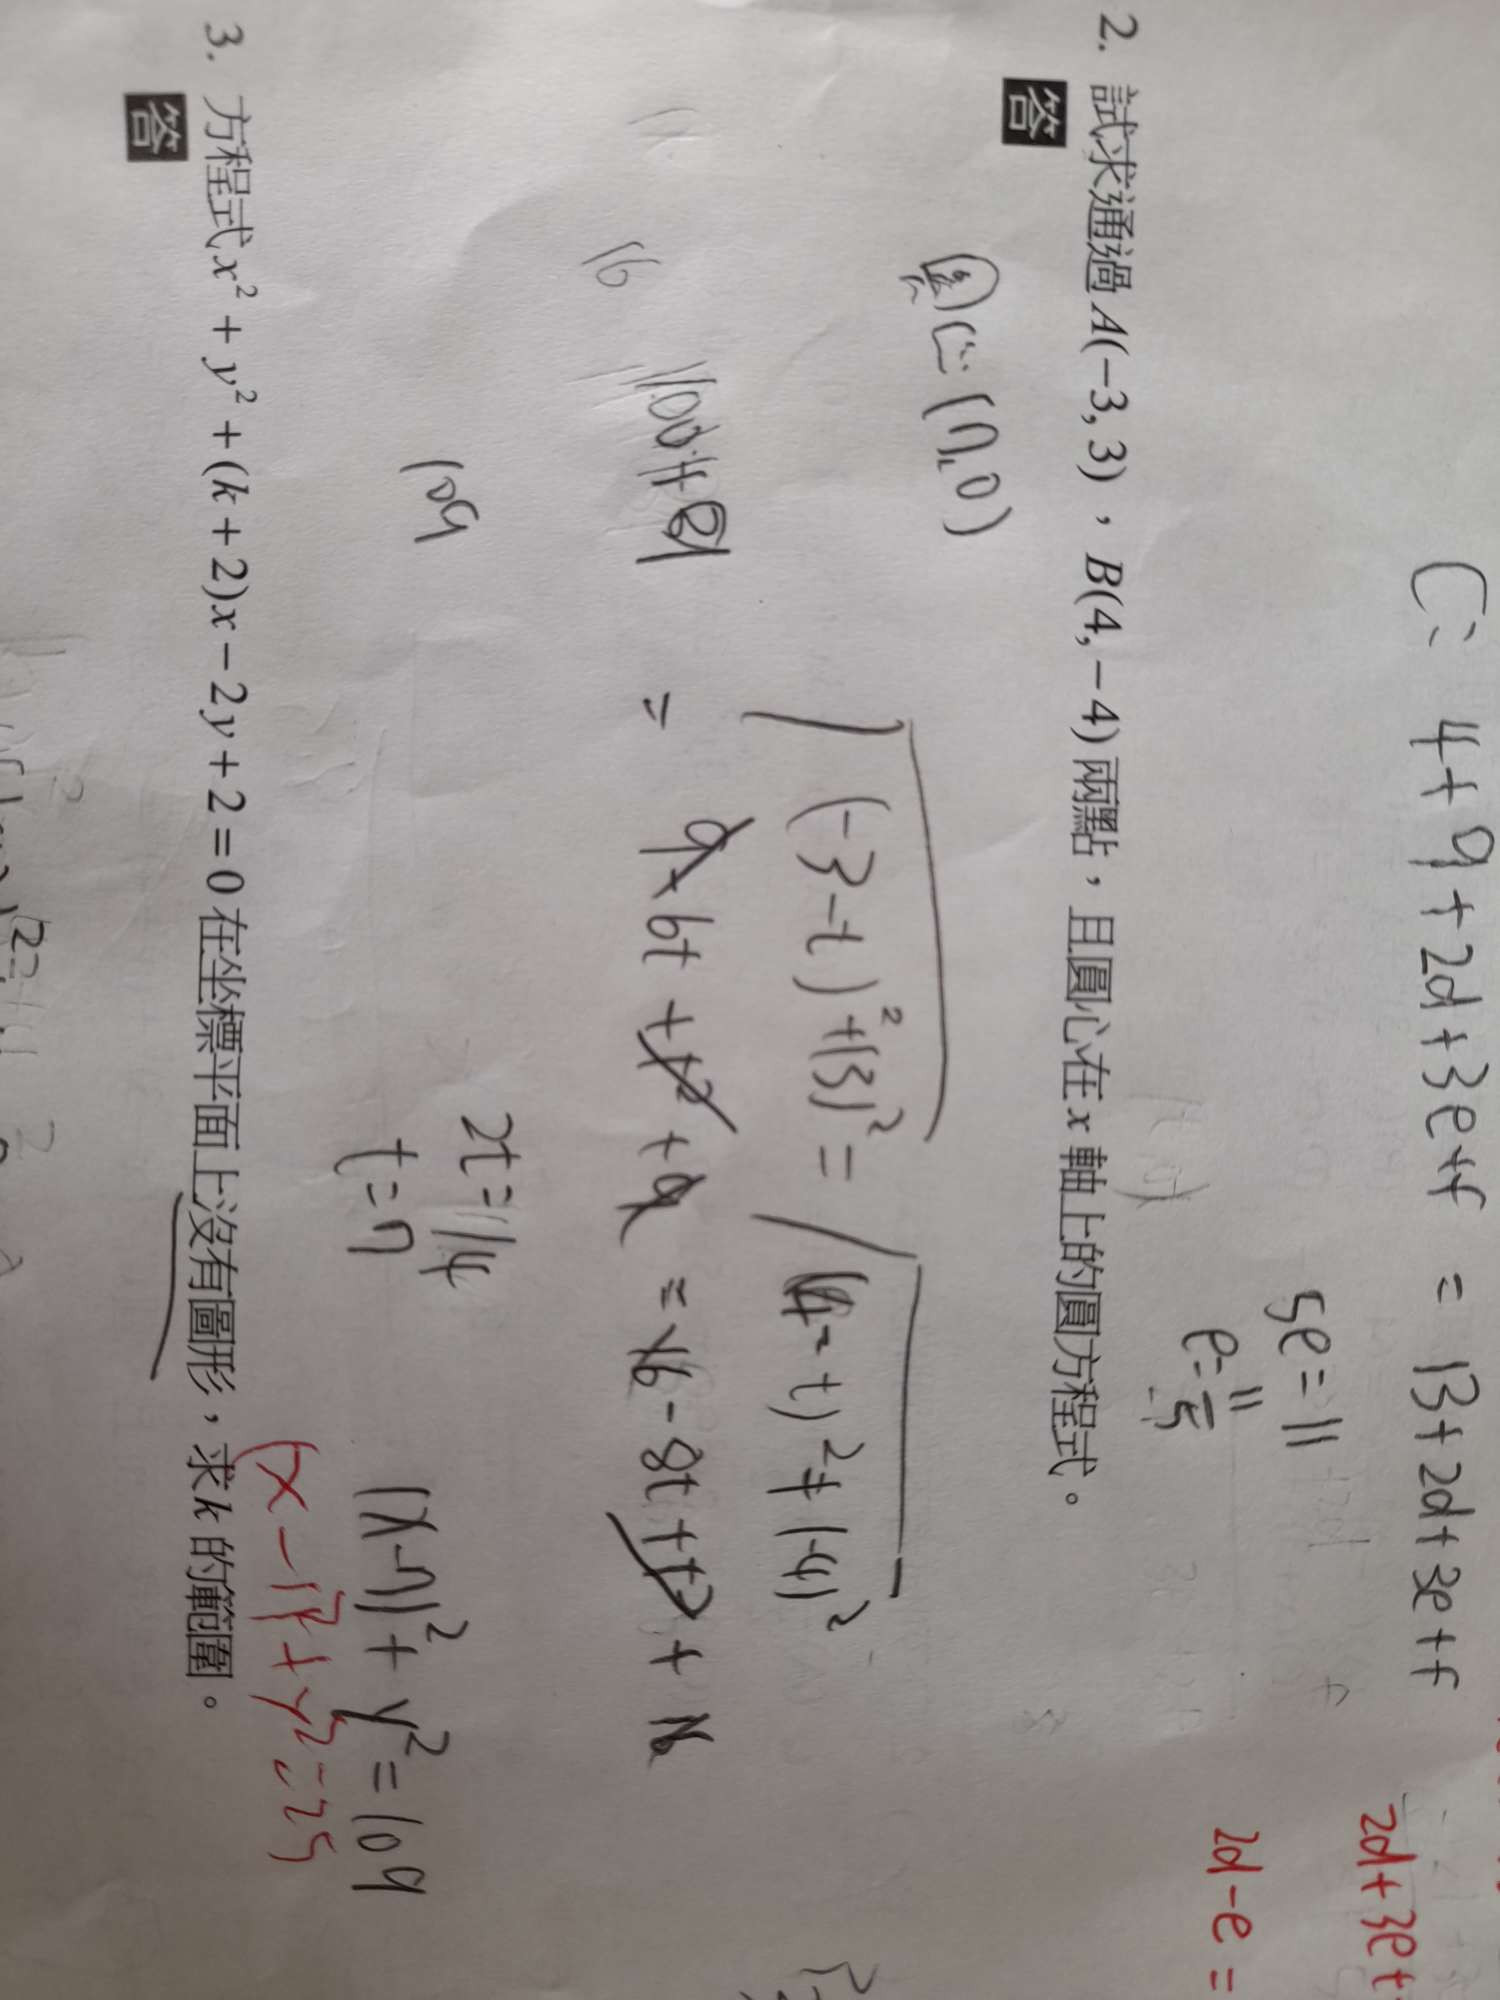 C: 4+9+2d+3e+f = 13+2d+3e+f
2d+3e+
5e=11
e=11/5
2d-e=
2. 試求通過A(-3,3),B(4,-4)兩點,且圓心在x軸上的圓方程式。
答
(7,0)
√(-3-t)²+(3)² = √(4-t)²+(-4)²
= 9+6t+t²+9 = 16-8t+t²+16
16
2t=14
109
t=7
(x-7)²+y²=109
(x-1)²+y²=25
3. 方程式x²+y²+(k+2)x-2y+2=0在坐標平面上沒有圖形,求k的範圍。
答